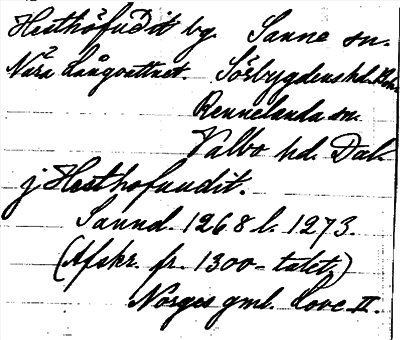 Hesthöfudit by. Sanne sn.
Nära Långvattnet. Sörbygdens hd. Boh.
Rennelanda sn.
Valbo hd. Dal.
j Hesthofuudit.
Sannd. 1268 l. 1273.
(Afskr. fr. 1300-talet)
Norges gml. Love II.